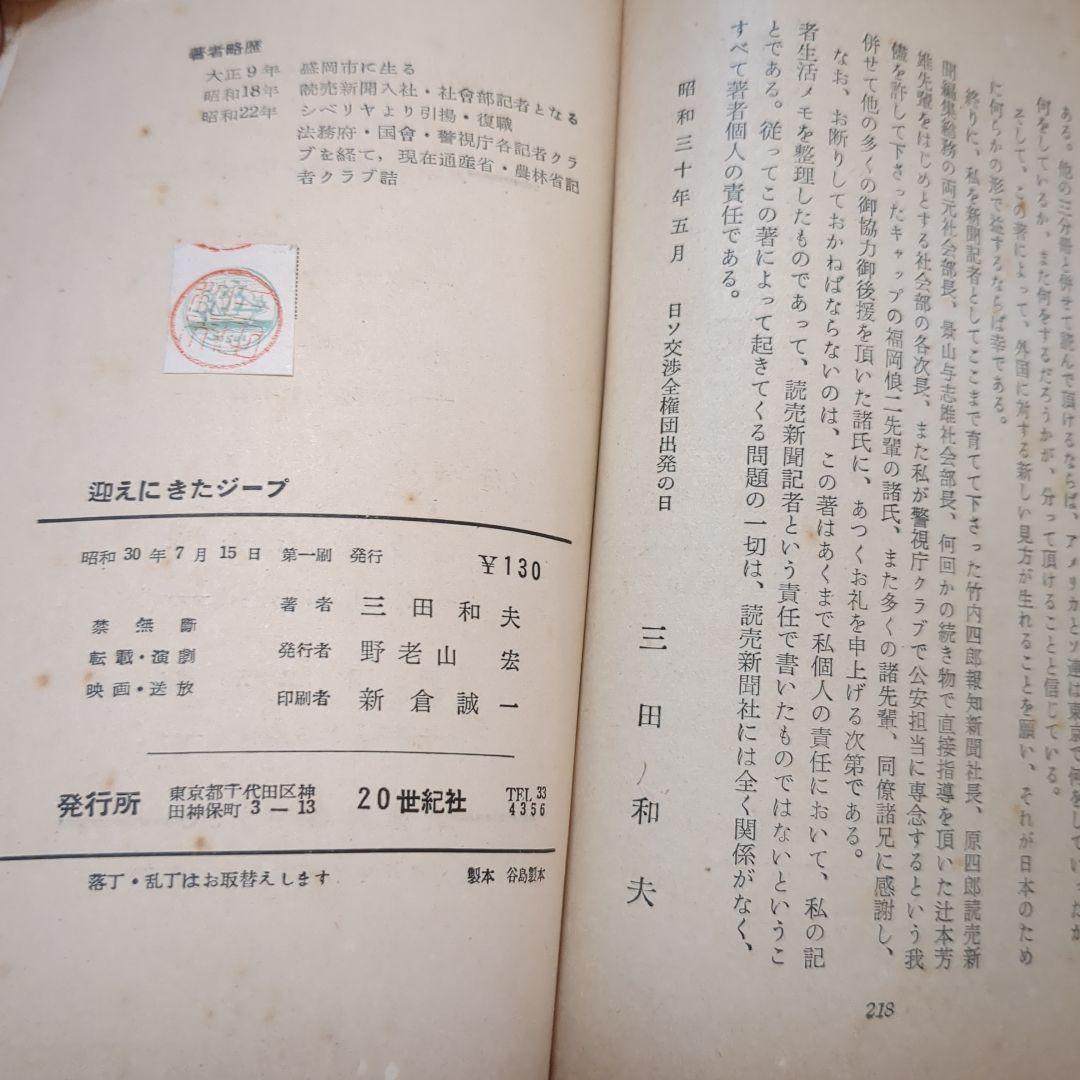 ある。他の三分冊と併せて読んで頂けるならば、アメリカとソ連は東京で何をしていたか
何をしているか、また何をするだろうかが、分って頂けることと信じている。
そして、この著によって、外国に対する新しい見方が生れることを願い、それが日本のため
に何らかの形で益するならば幸である。
終りに、私を新聞記者としてここまで育てて下さった竹内四郎報知新聞社長、原四郎読売新
聞編集総務の両元社会部長、景山与志雄社会部長、何回かの続き物で直接指導を頂いた辻本芳
雄先輩をはじめとする社会部の各次長、また私が警視庁クラブで公安担当に専念するという我
儘を許して下さったキャップの福岡俍二先輩の諸氏、また多くの諸先輩、同僚諸兄に感謝し、
併せて他の多くの御協力御後援を頂いた諸氏に、あつくお礼を申上げる次第である。
なお、お断りしておかねばならないのは、この著はあくまで私個人の責任において、私の記
者生活メモを整理したものであって、読売新聞記者という責任で書いたものではないというこ
とである。従ってこの著によって起きてくる問題の一切は、読売新聞社には全く関係がなく、
すべて著者個人の責任である。
昭和三十年五月 日ソ交渉全権団出発の日
三田和夫
218
著者略歴
大正9年 盛岡市に生る
昭和18年 読売新聞入社・社會部記者となる
昭和22年 シベリヤより引揚・復職
法務府・国會・警視庁各記者クラ
ブを経て，現在通産省・農林省記
者クラブ詰
迎えにきたジープ
昭和30年7月15日 第一刷 発行 ¥130
禁無断
転載・演劇
映画・送放
著者 三田和夫
発行者 野老山宏
印刷者 新倉誠一
発行所 東京都千代田区神
田神保町3―13 20世紀社 TEL33
4356
落丁・乱丁はお取替えします 製本 谷島製本